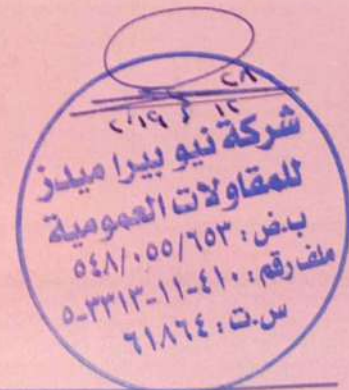 ٢٨
١٢
٢٠١٩
شركة نيو بيراميدز
للمقاولات العمومية
ب.ض: ٥٤٨/٠٥٥/٦٥٣
ملف رقم: ٤١٠-١١-٣٣١٣-٥
س.ت: ٦١٨٦٤